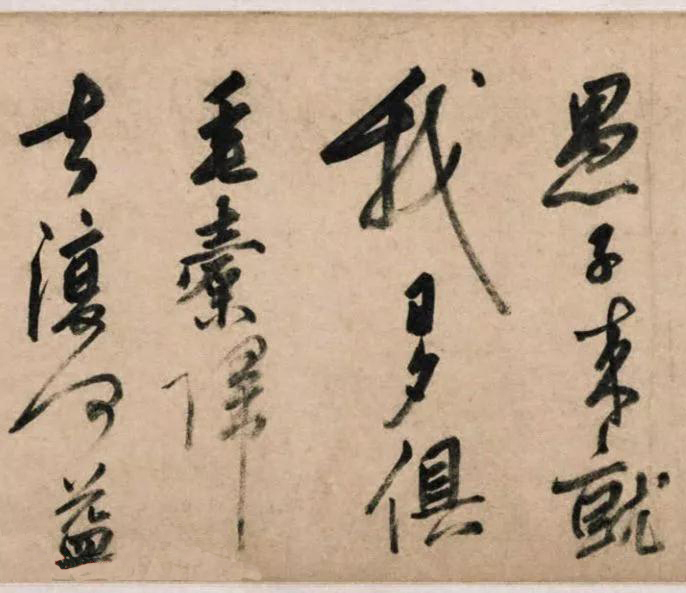 愚子来就
我日夕俱
垂橐歸
去復何益